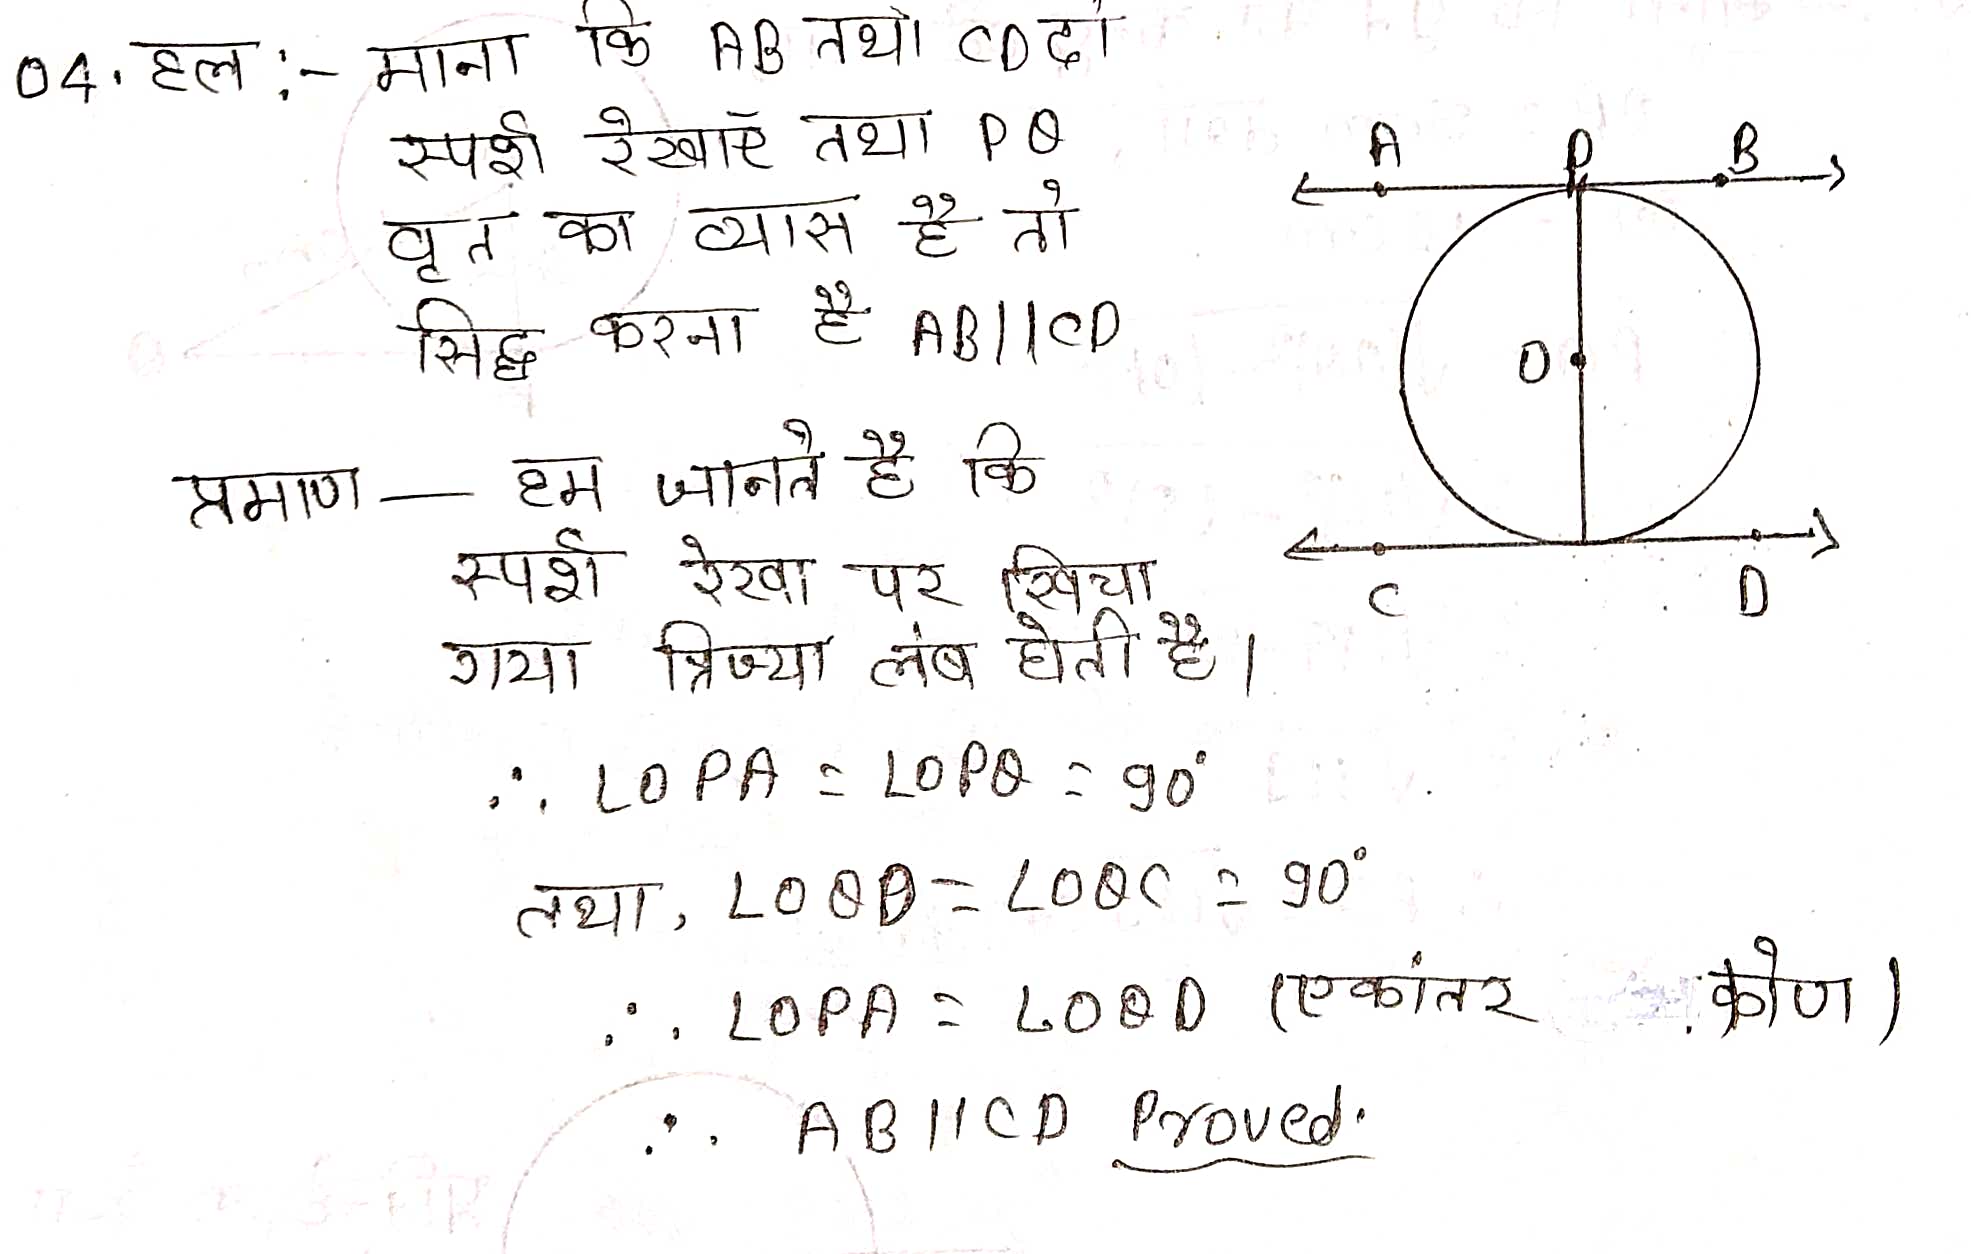 04. हल :- माना कि AB तथा CD दो
स्पर्श रेखाएँ तथा PQ
वृत का व्यास है तो
सिद्ध करना है AB||CD
A P B
O
C D
प्रमाण — हम जानते है कि
स्पर्श रेखा पर खिचा
गया त्रिज्या लंब होती है।
∴ ∠OPA = ∠OPQ = 90°
तथा, ∠OQD = ∠OQC = 90°
∴ ∠OPA = ∠OQD (एकांतर कोण)
∴ AB||CD Proved.